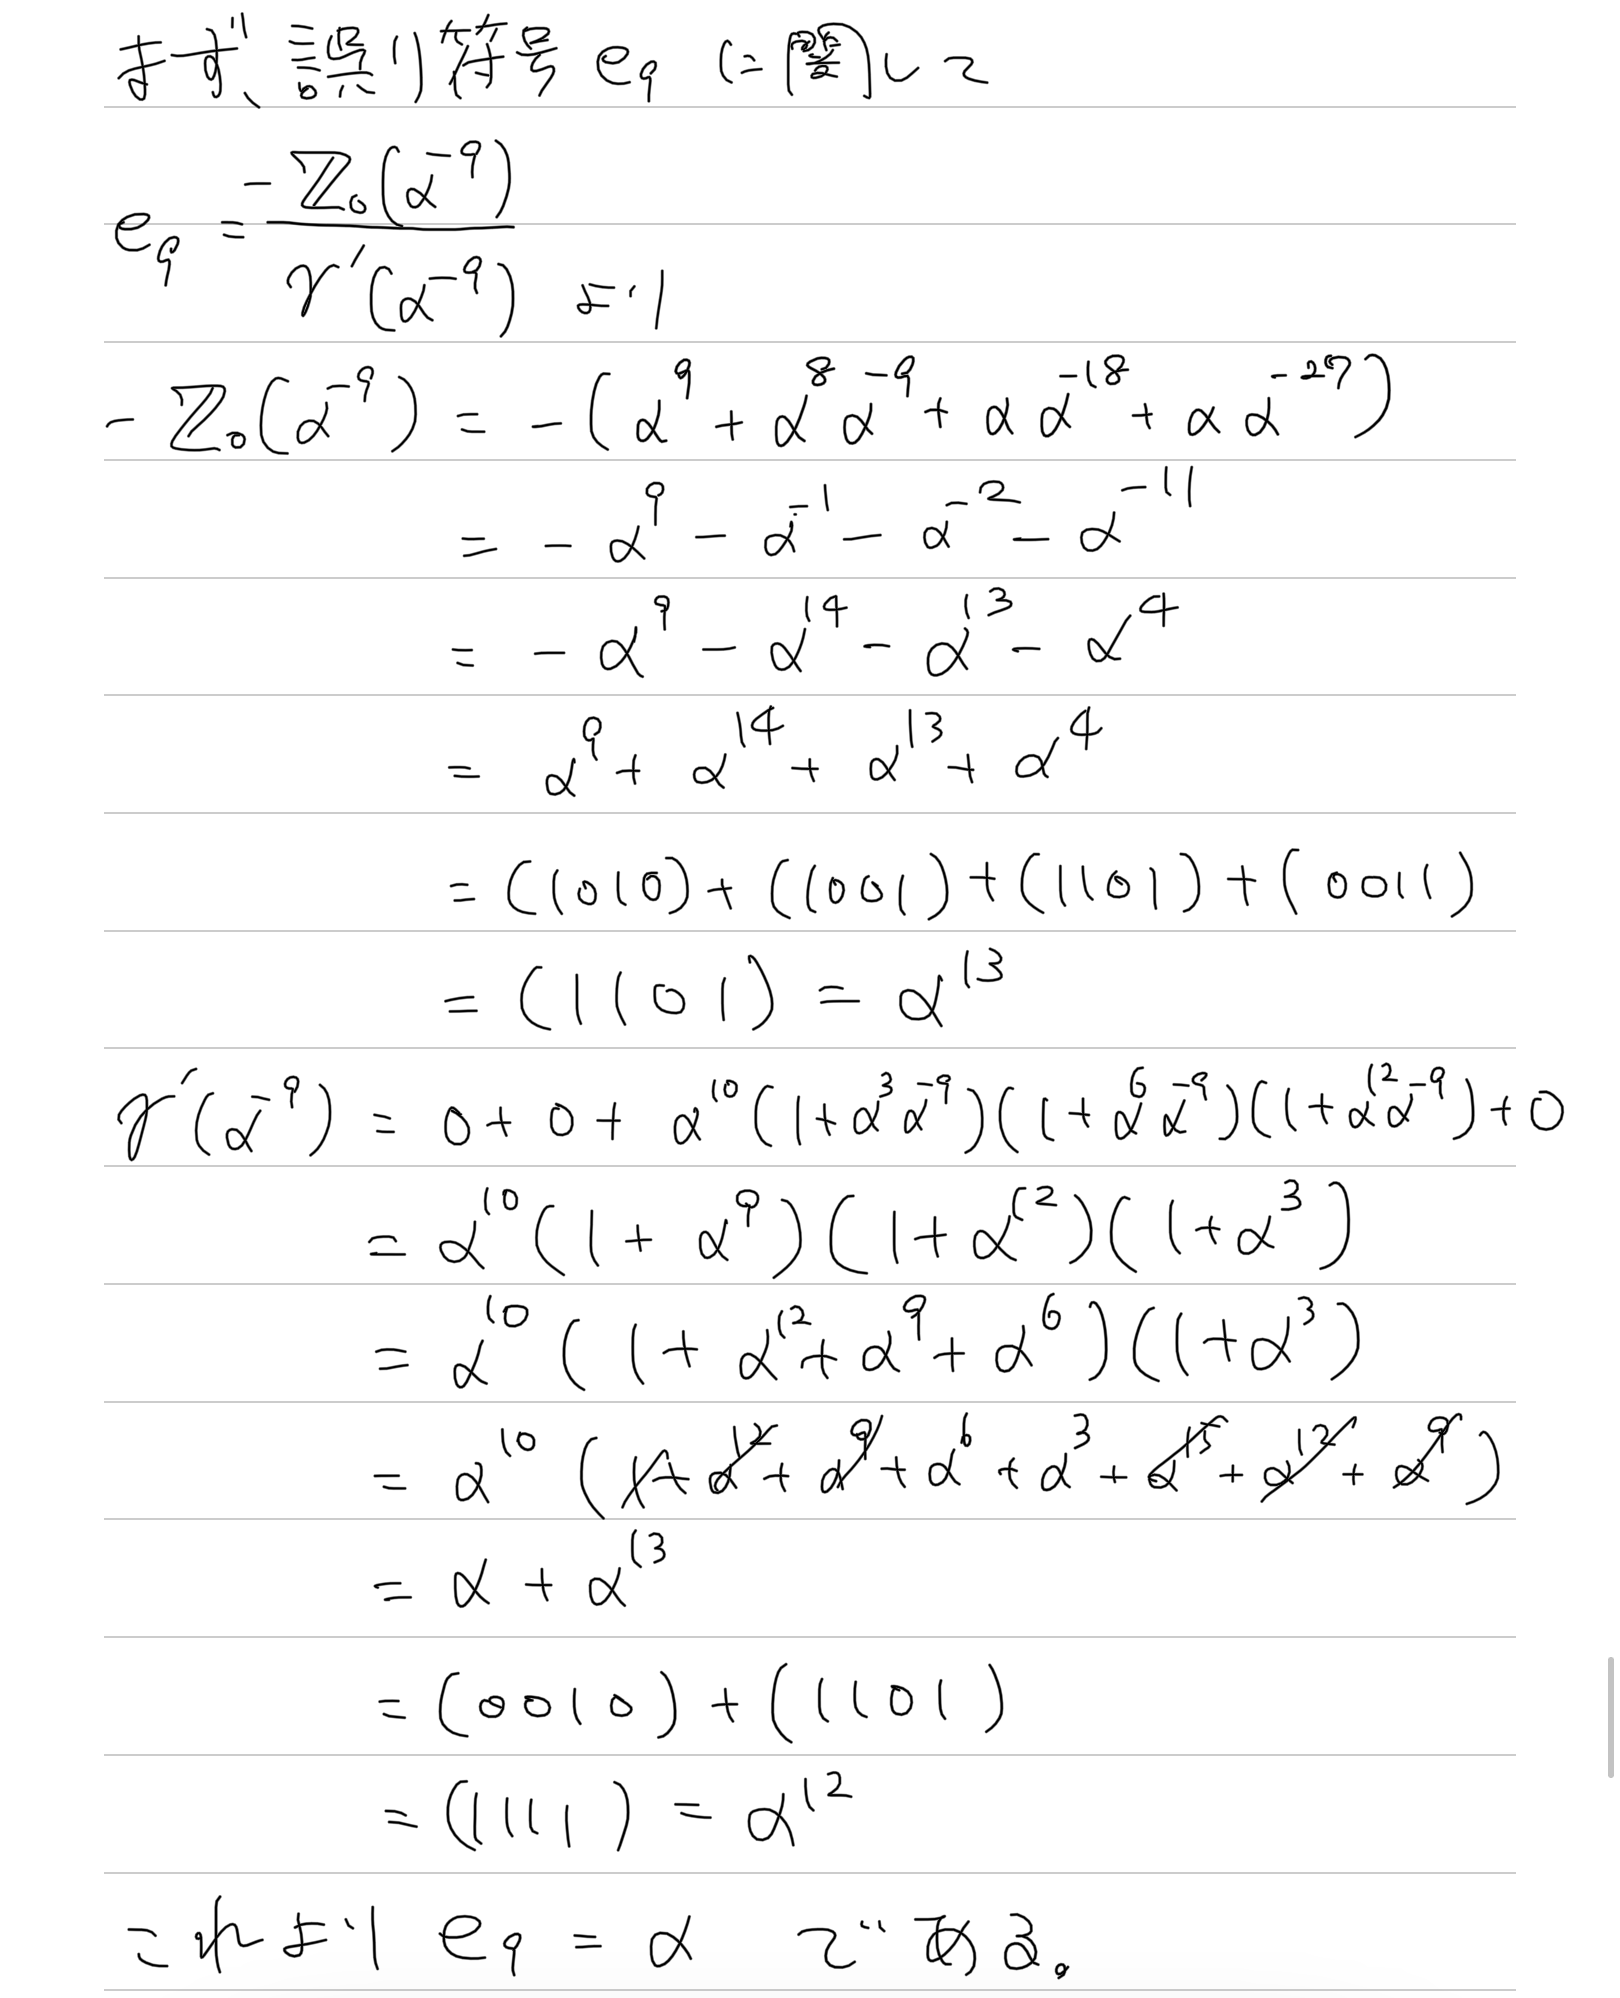 まず、誤り符号 e₉ に関して
e₉ = -Z₀(α⁻⁹) / γ'(α⁻⁹) より
-Z₀(α⁻⁹) = -(α⁹ + α⁸α⁻⁹ + αα⁻¹⁸ + αα⁻²⁷)
= -α⁹ - α⁻¹ - α⁻² - α⁻¹¹
= -α⁹ - α¹⁴ - α¹³ - α⁴
= α⁹ + α¹⁴ + α¹³ + α⁴
= (1010) + (1001) + (1101) + (0011)
= (1101) = α¹³
γ'(α⁻⁹) = 0 + 0 + α¹⁰(1+α³α⁻⁹)(1+α⁶α⁻⁹)(1+α¹²α⁻⁹) + 0
= α¹⁰(1+α⁹)(1+α¹²)(1+α³)
= α¹⁰(1+α¹²+α⁹+α⁶)(1+α³)
= α¹⁰(1+α¹²+α⁹+α⁶+α³+α¹⁵+α¹²+α⁹)
= α + α¹³
= (0010) + (1101)
= (1111) = α¹²
これより e₉ = α である。